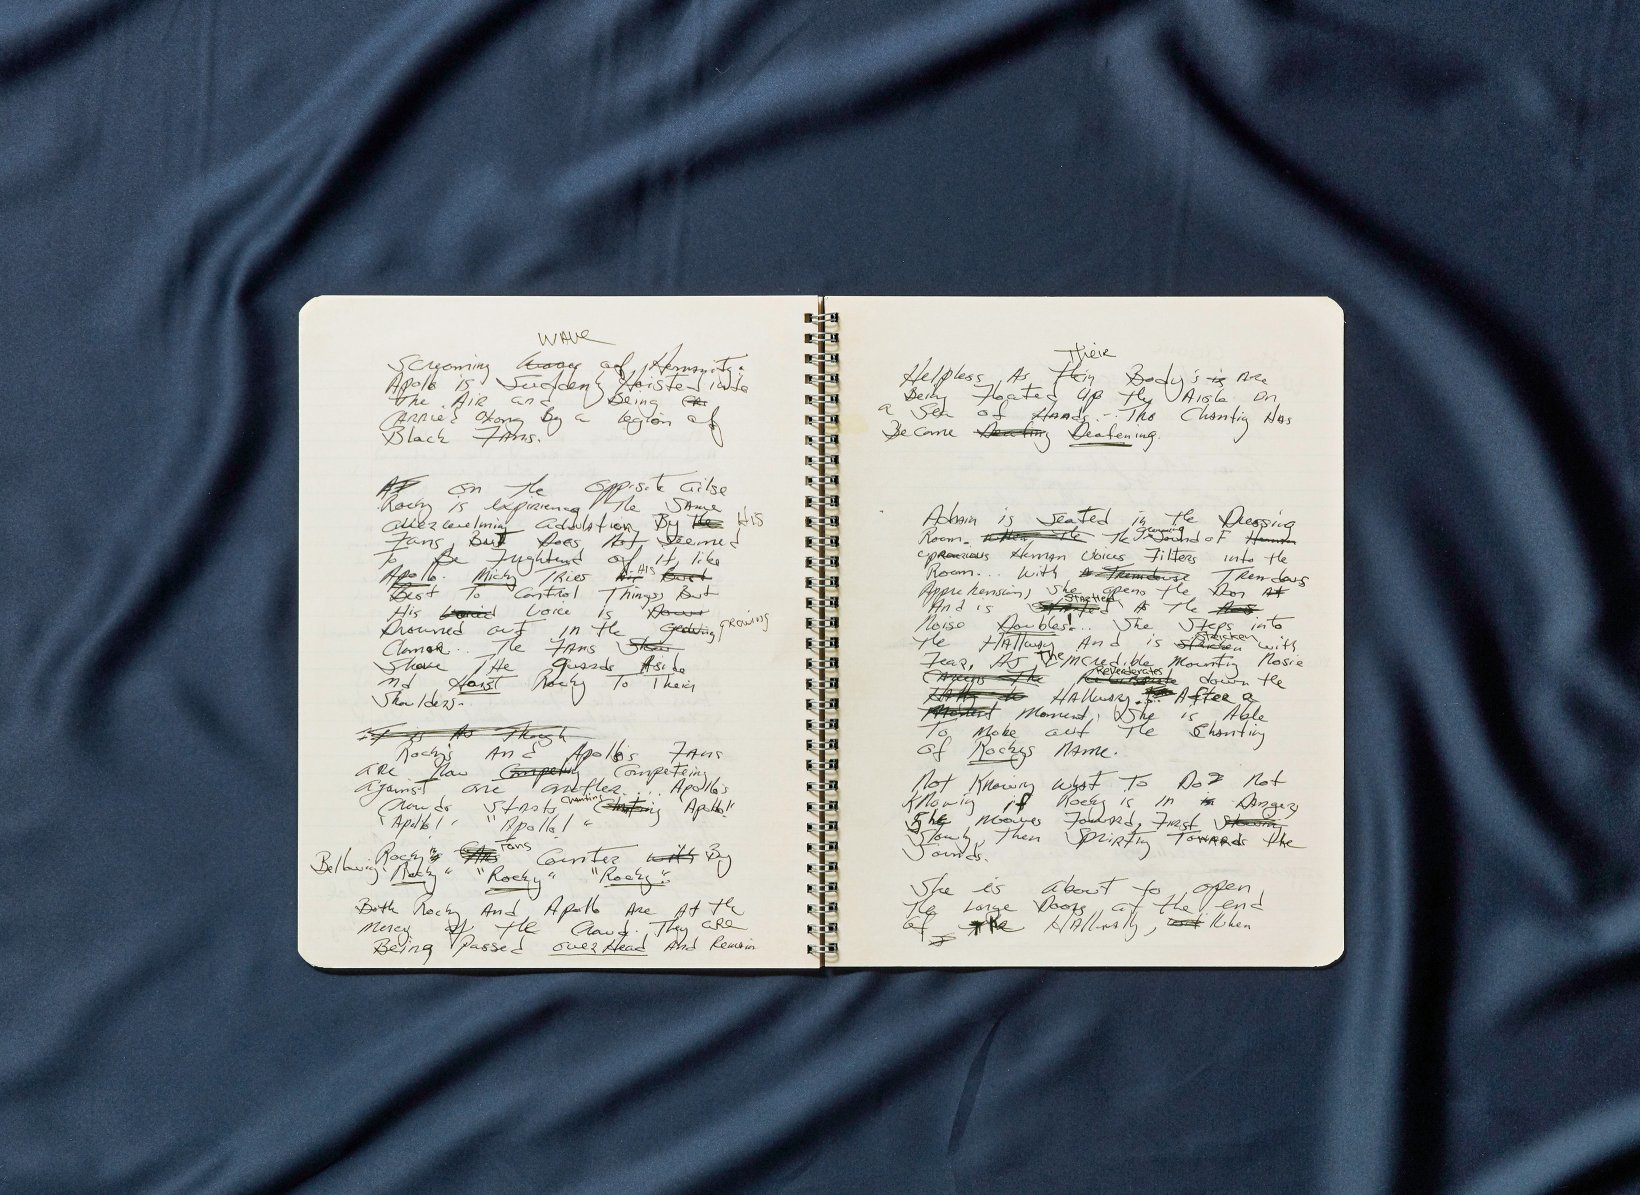 WAVE
Screaming of Humanity.
Apollo is Suddenly Hoisted into
The Air and Being
Carried along by a legion of
Black Fans.
on the opposite aisle
Rocky is expirience The Same
adulation By The HIS
Fans, But Does Not Seemed
To Be Frightend of it, like
Apollo. Micky Tries HIS Best
Best To Control Things But
His voice is Down
Drowned out in the growing
Clamor... The FANS
Shove The guards Aside
nd Hoist Rocky To Their
Shoulders.
It is As Though
Rocky's And Apollo's FANS
are Now Competing Competeing
against one another.... Apollo's
Crowds Starts Chanting Apollo!
"Apollo! " "Apollo! "
Rocky's Fans Counter with By
Bellowing "Rocky" "Rocky" "Rocky"
Both Rocky And Apollo Are At the
Mercy of The Crowd. They are
Being Passed over Head And Remain
Their
Helpless As Their Body's is Are
Being Floated Up The Aisle on
a Sea of Hands... The Chanting Has
Become Deafening.
Adrain is Seated in The Dressing
Room. The Sound of Human
Human Voices Filters into the
Room... With a Tremdouse Tremdous
Apprehension, She opens the Door At
And is Startled As The
Noise Doubles!... She Steps into
The Hallway And is Stricken with
Fear, As The Incredible Mounting Nosie
Careens The Reverberates down the
Hallway. After a
Moment Moment, She is Able
To Make out The Chanting
of Rockys NAME.
Not Knowing What To Do? Not
Knowig if Rocky is in Danger
She Moves Forward, First
Slowly, Then Sprintg Towards the
Sounds.
She is about to open
The Large Doors at the end
of The Hallway, When